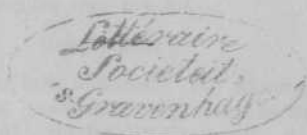 Littéraire
Societeit,
'sGravenhag